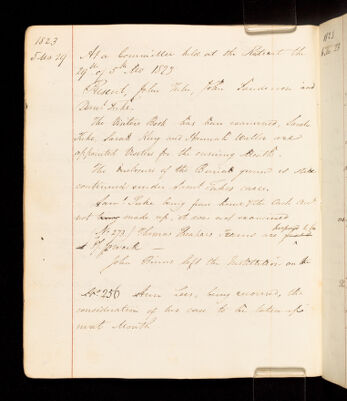 1823
5 Mo 29
At a Committee held at the Retreat the
29th of 5th Mo 1823
Present, John Tuke, John Sanderson and
Saml Tuke.
The Visitors Book has been examined, Sarah
Tuke, Sarah King and Hannah were
appointed Visitors for the ensuing Month.
The inclosure of the Burial ground is
continued under Saml Tukes care.
Saml Tuke being from home & the Cash Acct
not made up, it was not examined
(No 273) Thomas terms are
of P week —
John left the Institution on the
No 256 Ann Lees, being recovered, the
consideration of her case to be taken up
next Month